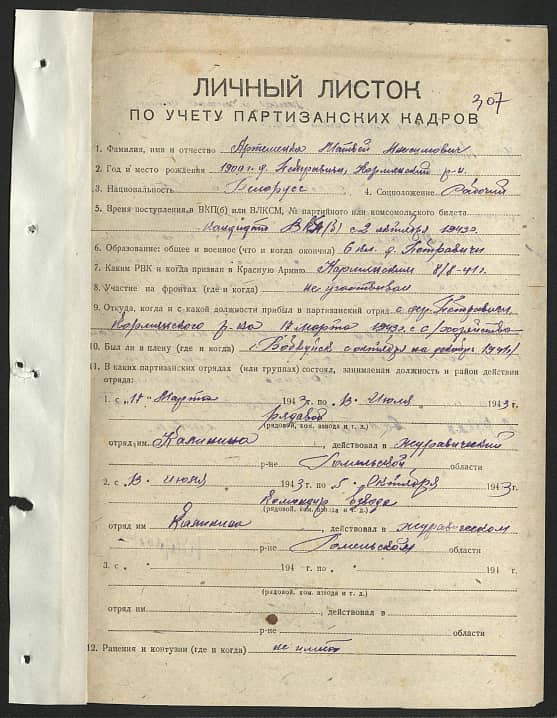 307
ЛИЧНЫЙ ЛИСТОК
ПО УЧЕТУ ПАРТИЗАНСКИХ КАДРОВ
1. Фамилия, имя и отчество Артеменко Матвей Максимович
2. Год и место рождения 1900 г. д. Петравичи, Кормянский р-н.
3. Национальность Белорус 4. Соцположение Рабочий
5. Время поступления в ВКП(б) или ВЛКСМ, № партийного или комсомольского билета
Кандидат ВКП(б) с 2 октября 1943 г.
6. Образование: общее и военное (что и когда окончил) 6 кл. д. Петравичи
7. Каким РВК и когда призван в Красную Армию Кармянским 8/8-41 г.
8. Участие на фронтах (где и когда) не участвовал
9. Откуда, когда и с какой должности прибыл в партизанский отряд с дер. Петравичи
Кормянского р-на 11 марта 1943 г. с с/хозяйства
10. Был ли в плену (где и когда) г. Бобруйск с октября на декабрь 1941 г.
11. В каких партизанских отрядах (или группах) состоял, занимаемая должность и район действия
отряда:
1. с 11 Марта 1943 г. по 13 Июля 1943 г.
рядовой
(рядовой, ком. взвода и т. д.)
отряд им. Калинина, действовал в журавический
р-не Гомельской области
2. с 13 июня 1943 г. по 5 Октября 1943 г.
Командир взвода
(рядовой, ком. взвода и т. д.)
отряд им Калинина, действовал в журавическом
р-не Гомельской области
3. с 194 г. по 194 г.
(рядовой, ком. взвода и т. д.)
отряд им., действовал в
р-не области
12. Ранения и контузии (где и когда) не имею